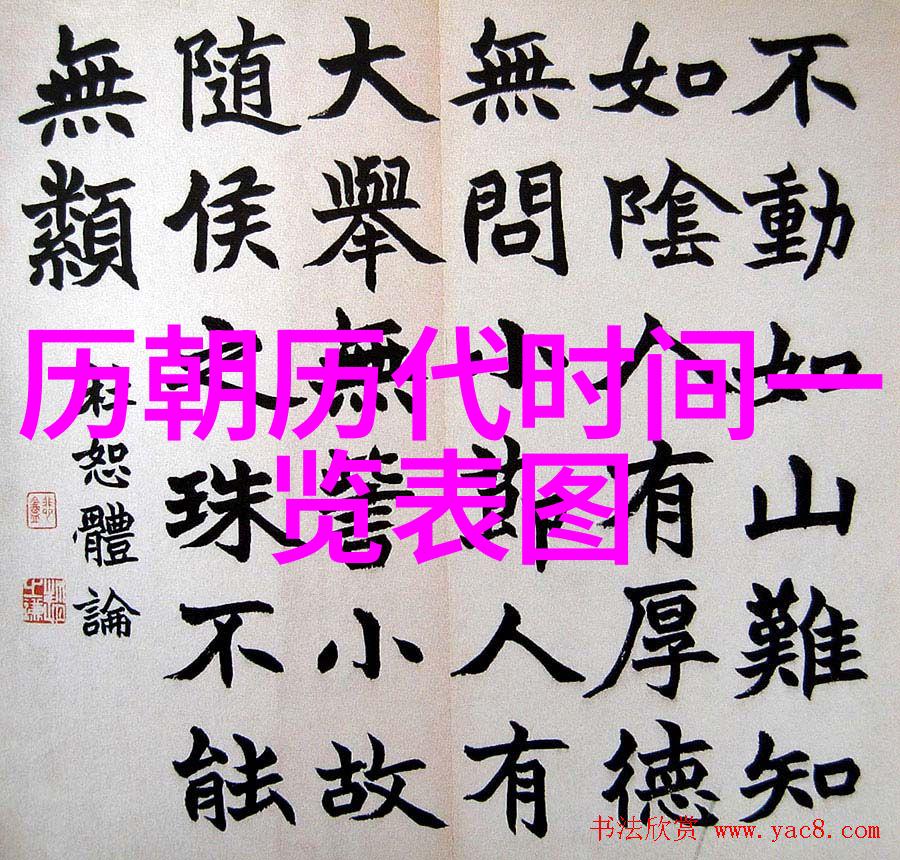 历朝历代时间一
览表图
不動如山難知
如陰人有厚德
無問小節人有
大舉無訾小故
隨侯之珠不能
無纇
杜恕體論
书法欣赏 www.yac8.com